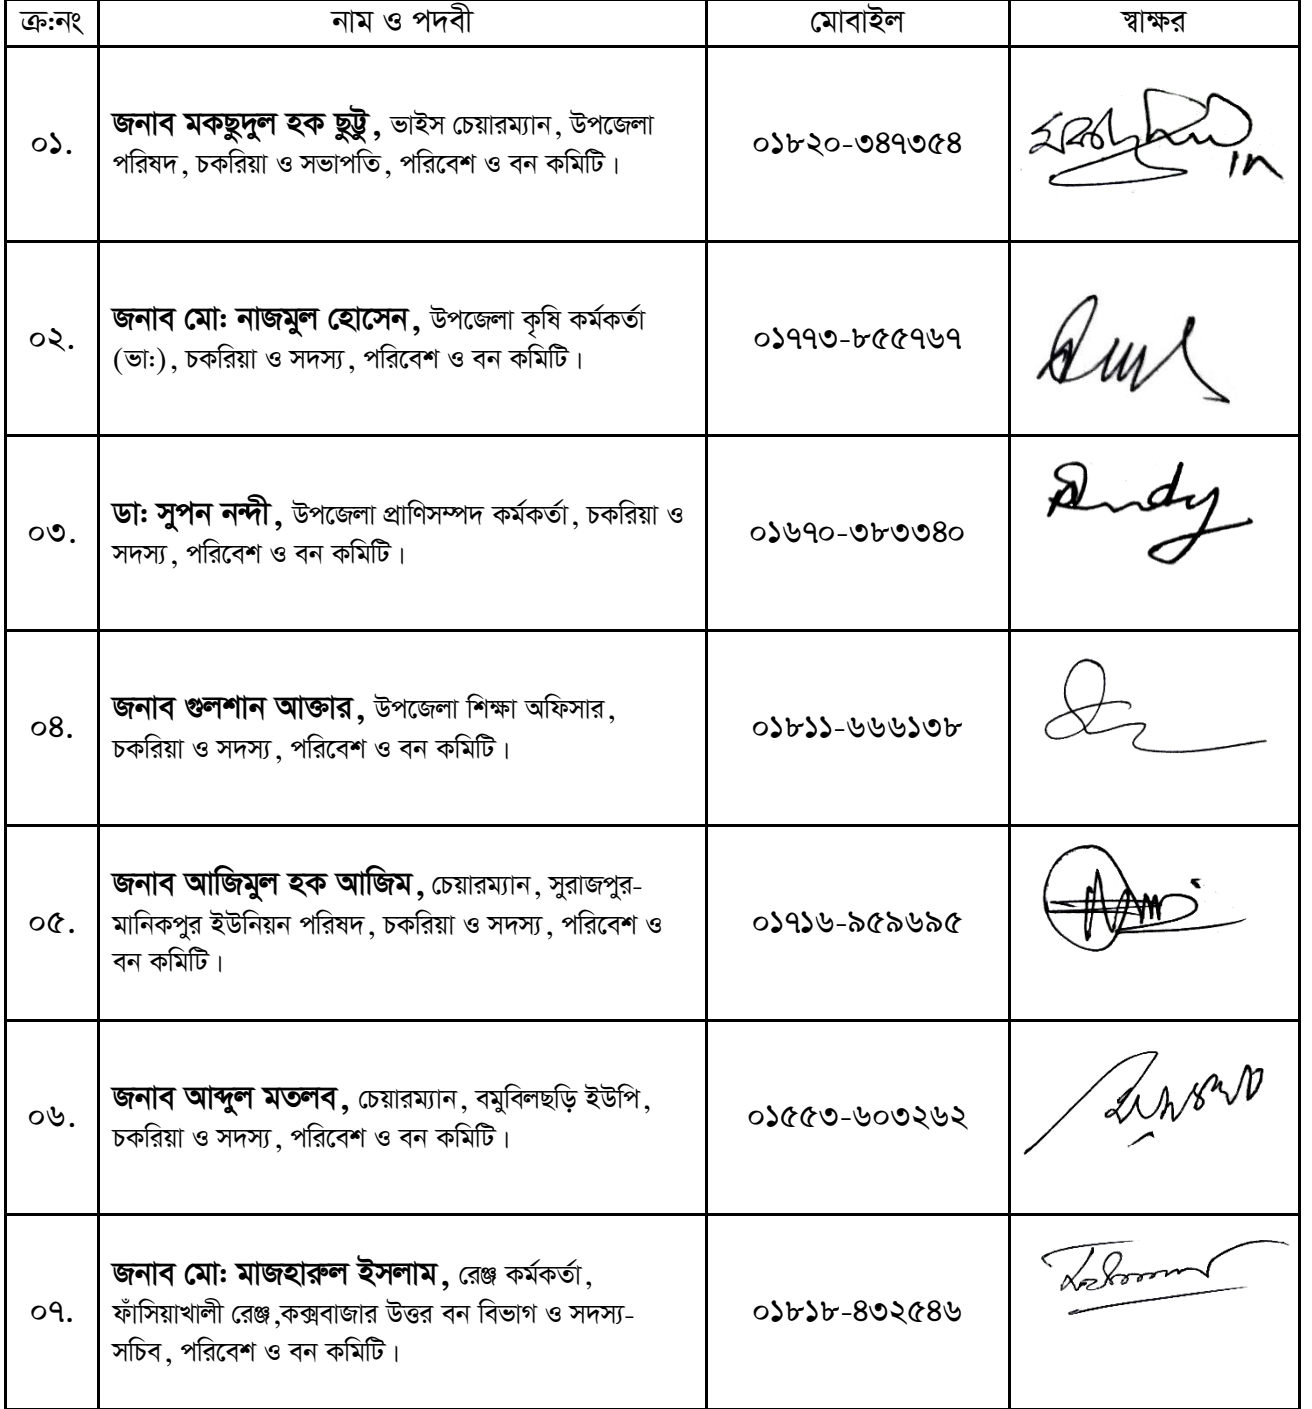 ক্র:নং নাম ও পদবী মোবাইল স্বাক্ষর
০১. জনাব মকছুদুল হক ছুট্টু, ভাইস চেয়ারম্যান, উপজেলা
পরিষদ, চকরিয়া ও সভাপতি, পরিবেশ ও বন কমিটি। ০১৮২০-৩৪৭৩৫৪
০২. জনাব মো: নাজমুল হোসেন, উপজেলা কৃষি কর্মকর্তা
(ভা:), চকরিয়া ও সদস্য, পরিবেশ ও বন কমিটি। ০১৭৭৩-৮৫৫৭৬৭
০৩. ডা: সুপন নন্দী, উপজেলা প্রাণিসম্পদ কর্মকর্তা, চকরিয়া ও
সদস্য, পরিবেশ ও বন কমিটি। ০১৬৭০-৩৮৩৩৪০
০৪. জনাব গুলশান আক্তার, উপজেলা শিক্ষা অফিসার,
চকরিয়া ও সদস্য, পরিবেশ ও বন কমিটি। ০১৮১১-৬৬৬১৩৮
০৫. জনাব আজিমুল হক আজিম, চেয়ারম্যান, সুরাজপুর-
মানিকপুর ইউনিয়ন পরিষদ, চকরিয়া ও সদস্য, পরিবেশ ও
বন কমিটি। ০১৭১৬-৯৫৯৬৯৫
০৬. জনাব আব্দুল মতলব, চেয়ারম্যান, বমুবিলছড়ি ইউপি,
চকরিয়া ও সদস্য, পরিবেশ ও বন কমিটি। ০১৫৫৩-৬০৩২৬২
০৭. জনাব মো: মাজহারুল ইসলাম, রেঞ্জ কর্মকর্তা,
ফাঁসিয়াখালী রেঞ্জ,কক্সবাজার উত্তর বন বিভাগ ও সদস্য-
সচিব, পরিবেশ ও বন কমিটি। ০১৮১৮-৪৩২৫৪৬